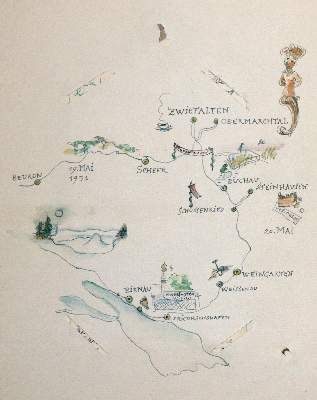 ZWIEFALTEN
OBERMARCHTAL
BEURON
19. MAI
1971
SCHEER
BUCHAU
STEINHAUSEN
SCHUSSENRIED
20. MAI
WEINGARTEN
WEISSENAU
BIRNAU
FRIEDRICHSHAFEN